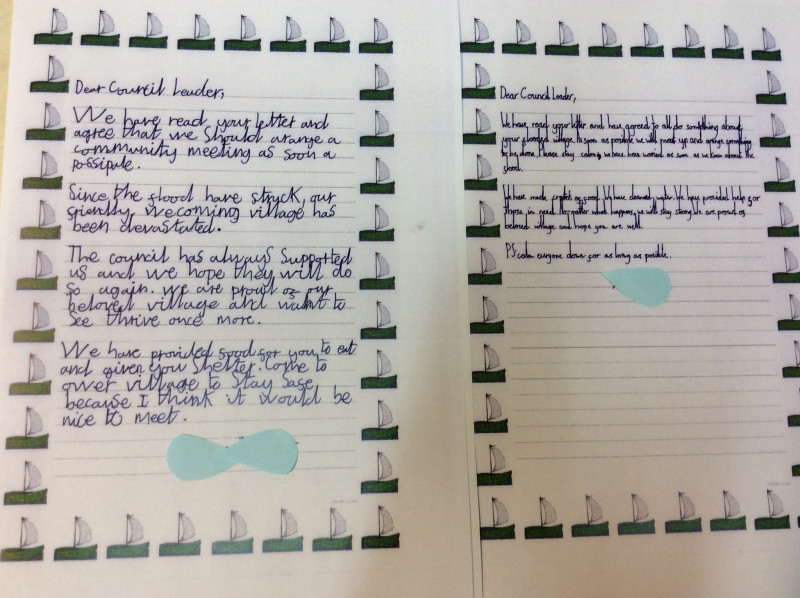 Dear Council Leader,
We have read your letter and
agree that we should arange a
community meeting as soon a
possipule.
Since the flood have struck, our
friently, wecoming village has
been devastated.
The council has always supported
us and we hope they will do
so again. We are proud of our
beloved village and want to
see thrive once more.
We have provided food for you to eat
and given you shelter. Come to
ower village to stay safe
because I think it would be
nice to meet.
Dear Council Leader,
We have read your letter and have agreed to all do something about
your flooded village. As soon as possible we will meet up and arrange something
to be done. Please stay calm we have been worried as soon as we knew about the
flood.
We have made of food. We have cleaned water. We have provided help for
those in need. No matter what happens, we will stay strong. We are proud of
beloved village and hope you are well.
P.S calm everyone down for as long as possible.